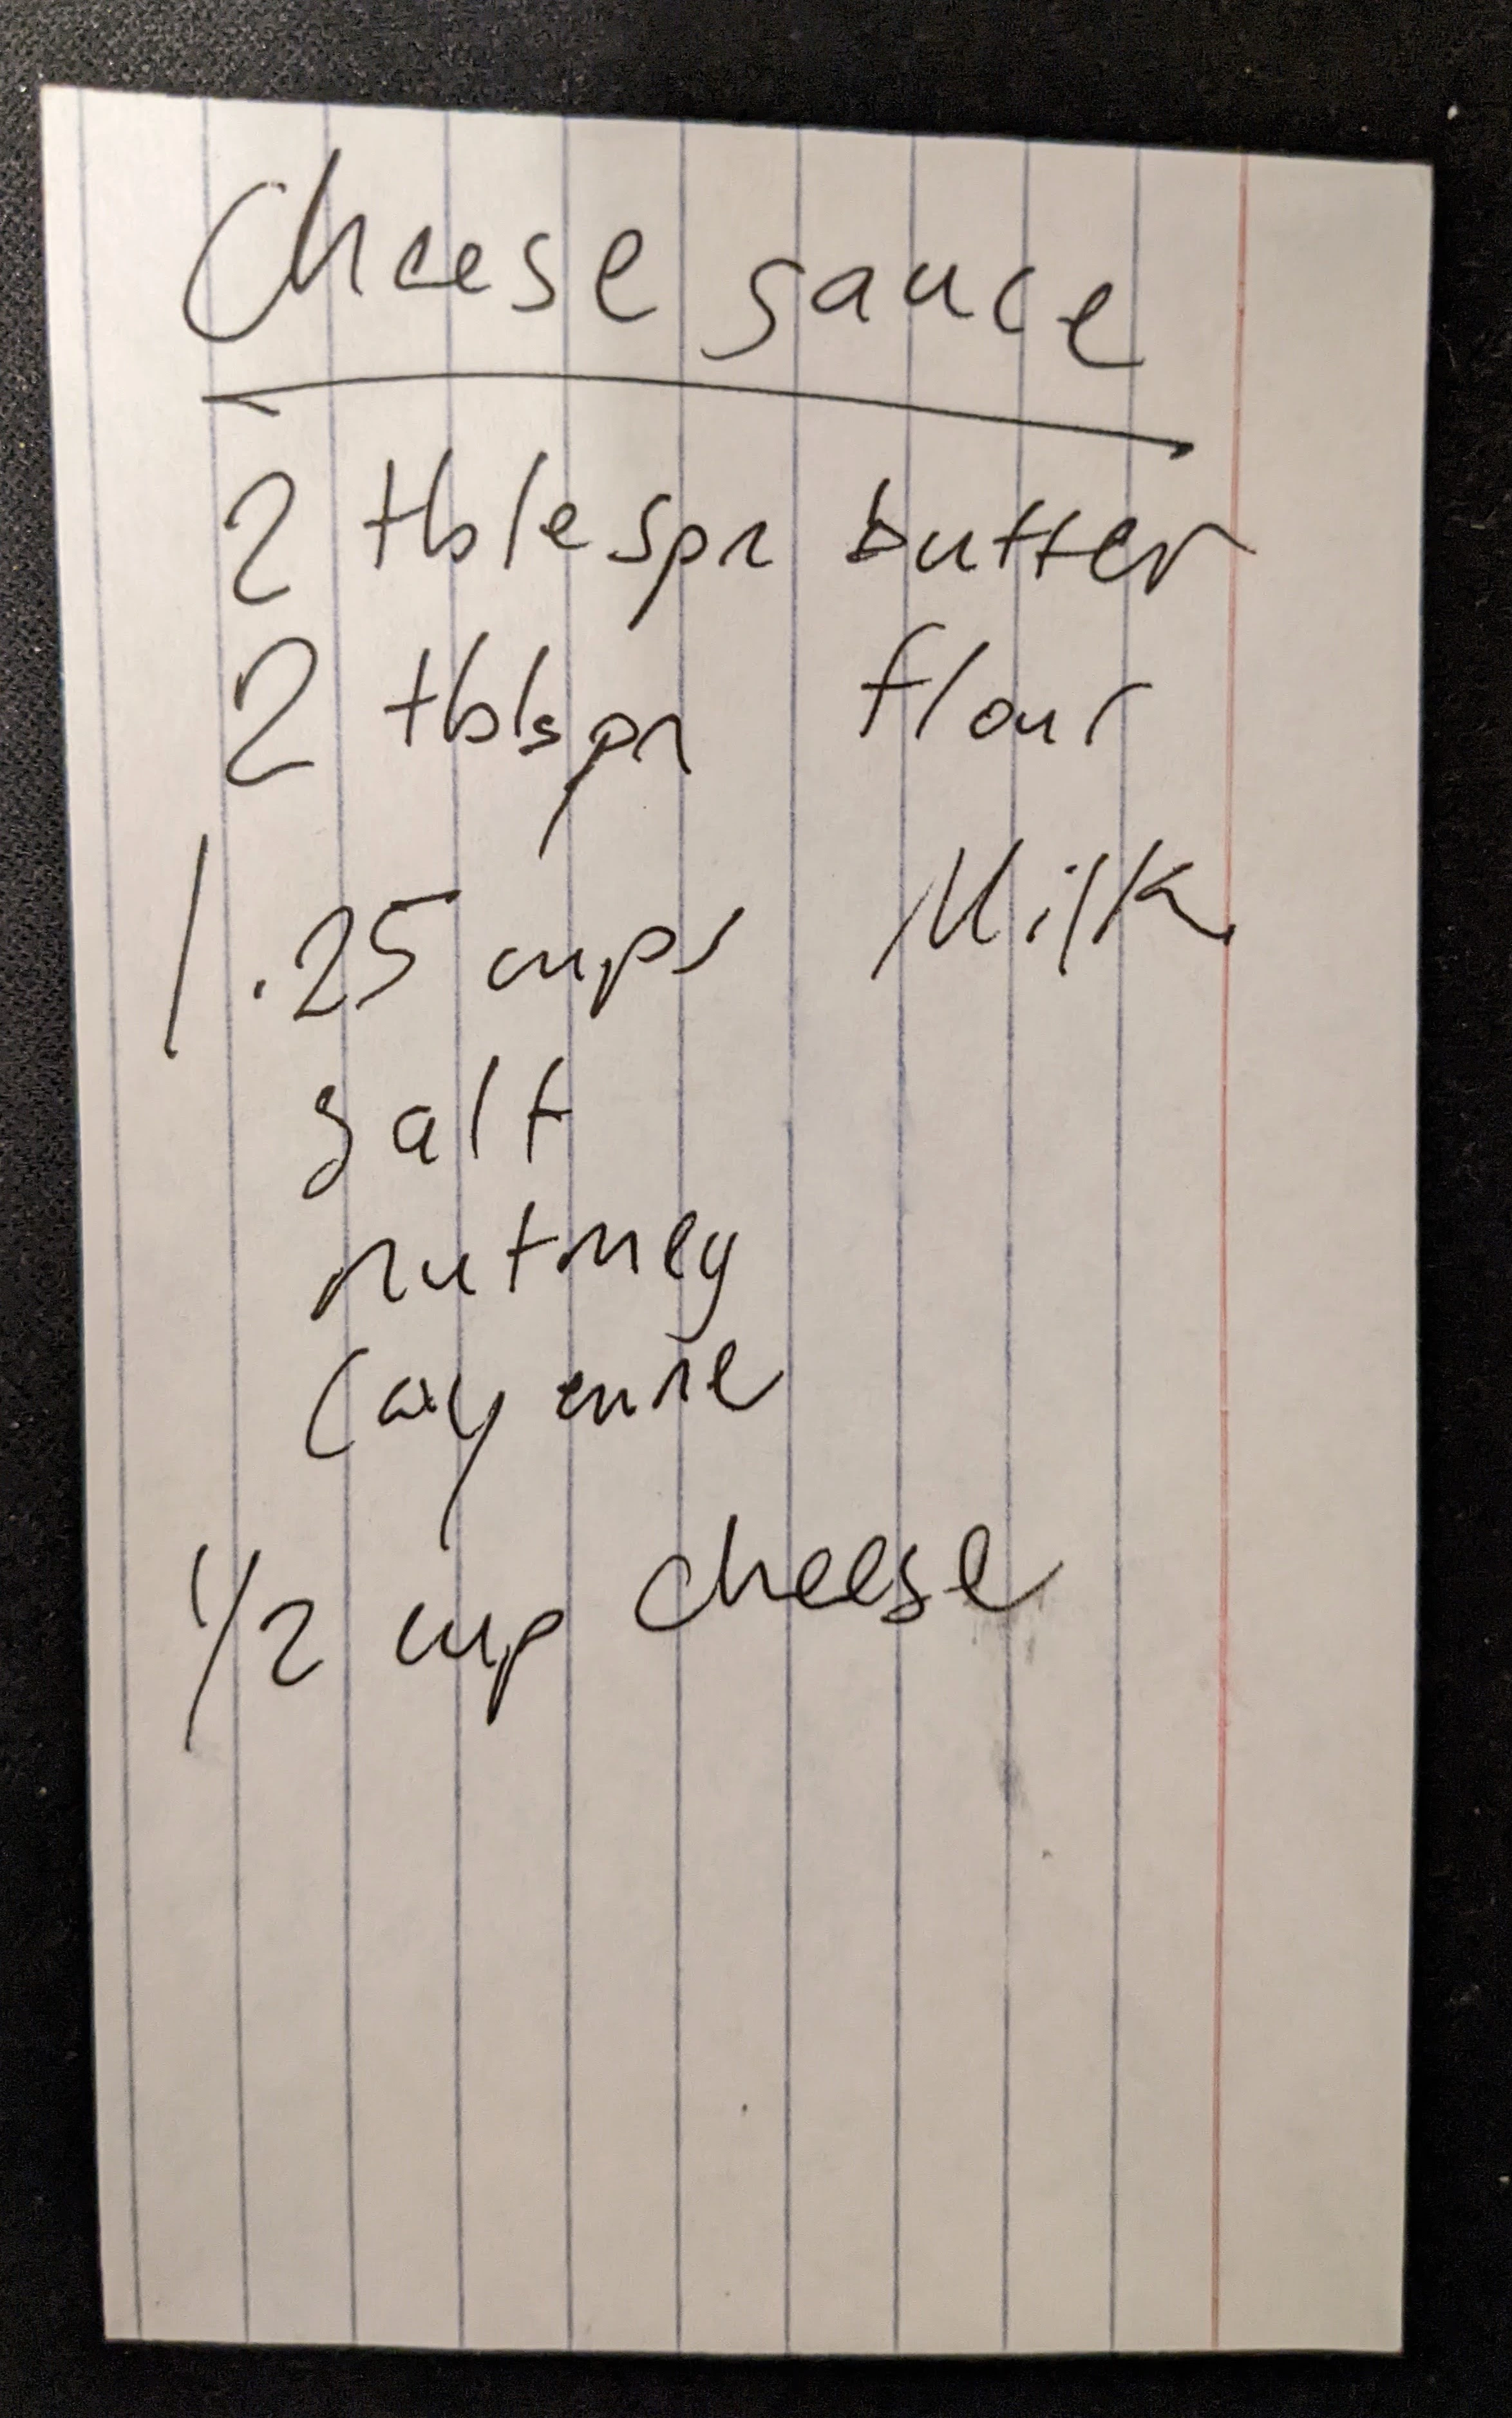 Cheese sauce
2 tblespn butter
2 tblspn flour
1.25 cups Milk
salt
nutmeg
Cayenne
1/2 cup cheese